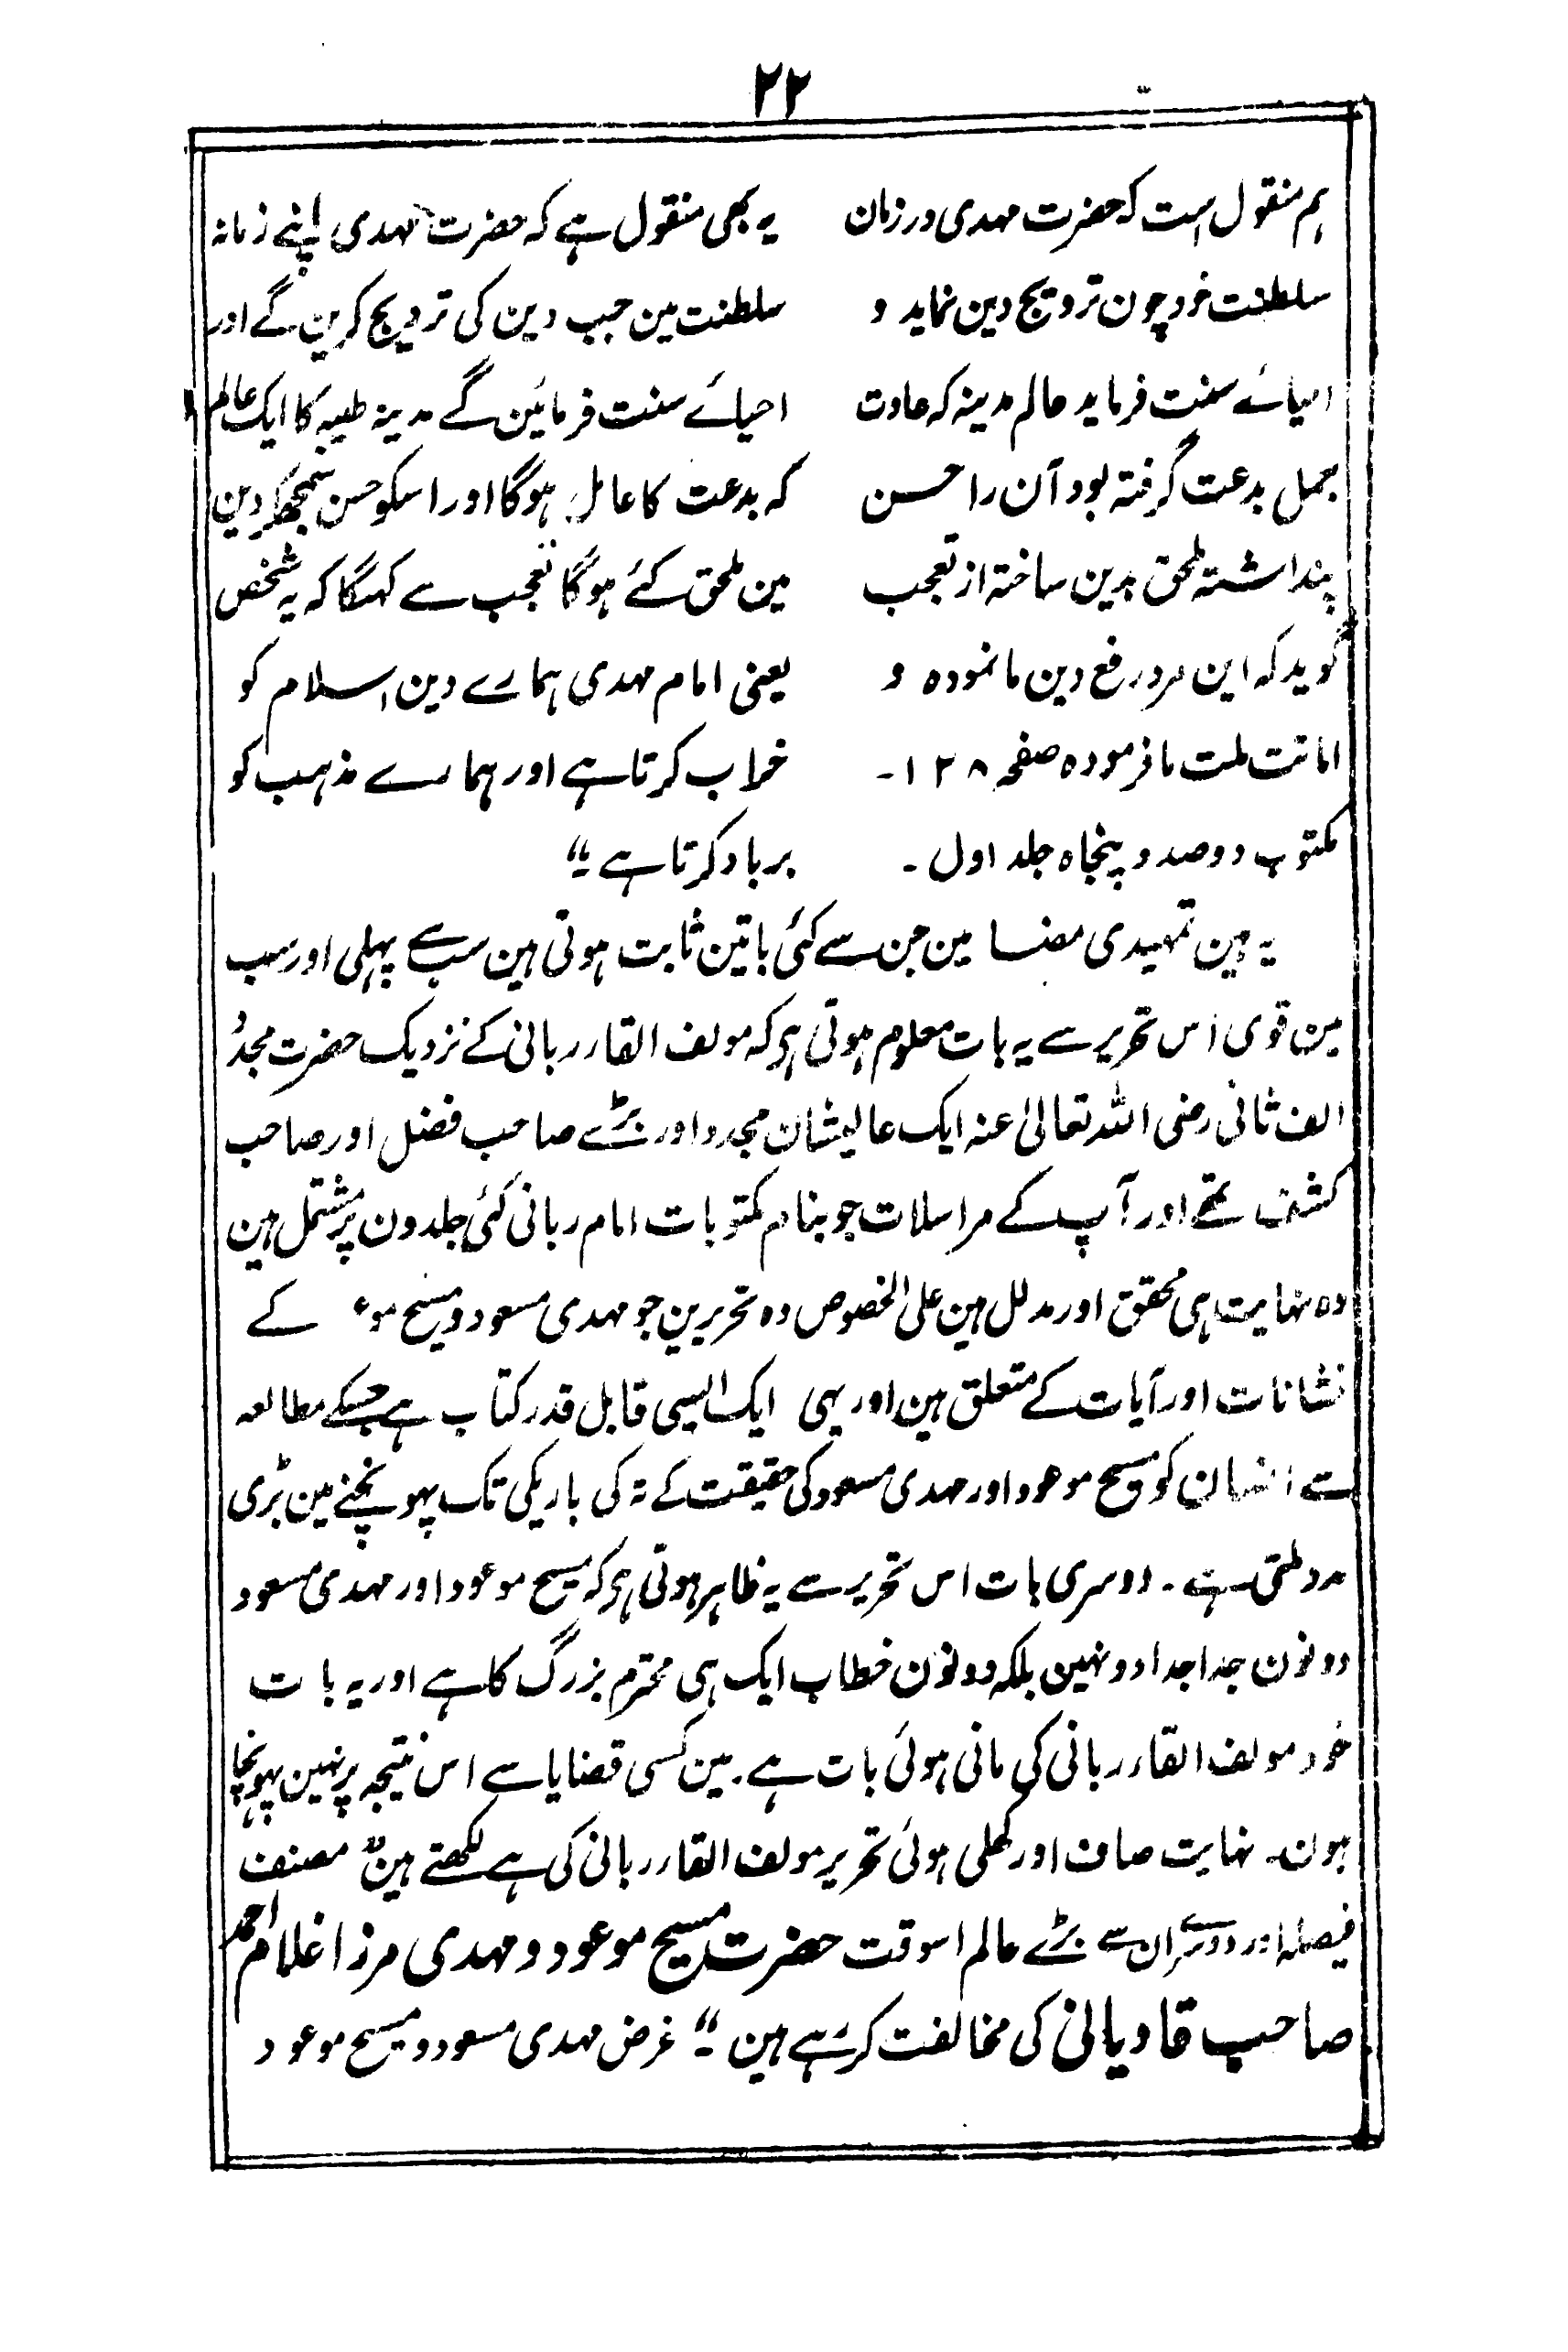 ۲۲
ہم منقول است کہ حضرت مہدی در زمان
سلطنت خود چون ترویج دین نماید و
احیائے سنت فرماید عالم مدینہ کہ عادت
بعمل بدعت گرفتہ بود آن را حسن
پنداشتہ ملحق بدین ساختہ از تعجب
گوید کہ این مرد رفع دین ما نمودہ و
اماتت ملت ما فرمودہ صفحہ ۱۲۸ ۔
مکتوب دوصد و پنجاہ جلد اول ۔
یہ بھی منقول ہے کہ حضرت مہدی اپنے زمانہ
سلطنت مین جب دین کی ترویج کرین گے اور
احیائے سنت فرمائین گے مدینہ طیبہ کا ایک عالم
کہ بدعت کا عامل ہوگا اور اسکو حسن سمجھکر دین
مین ملحق کئے ہوگا تعجب سے کہیگا کہ یہ شخص
یعنی امام مہدی ہمارے دین اسلام کو
خراب کرتا ہے اور ہمارے مذہب کو
برباد کرتا ہے ۔“
یہ ہین تمہیدی مضامین جن سے کئی باتین ثابت ہوتی ہین سب سے پہلی اور سب
مین قوی اس تحریر سے یہ بات معلوم ہوتی ہر کہ مولف القاء ربانی کے نزدیک حضرت مجدد
الف ثانی رضی اللہ تعالیٰ عنہ ایک عالیشان مجدد اور بڑے صاحب فضل اور صاحب
کشف تھے اور آپ کے مراسلات جو بنام مکتوبات امام ربانی کئی جلدون پر مشتمل ہین
وہ نہایت ہی محقق اور مدلل ہین علی الخصوص وہ تحریرین جو مہدی مسعود و مسیح موء کے
نشانات اور آیات کے متعلق ہین اور یہی ایک ایسی قابل قدر کتاب ہے جسکے مطالعہ
سے انسان کو مسیح موعود اور مہدی مسعود کی حقیقت کے تہ کی باریکی تک پہونچنے مین بڑی
مدد ملتی ہے ۔ دوسری بات اس تحریر سے یہ ظاہر ہوتی ہر کہ مسیح موعود اور مہدی مسعود
دونون جدا جدا دو نہین بلکہ دونون خطاب ایک ہی محترم بزرگ کا ہے اور یہ بات
خود مولف القاء ربانی کی مانی ہوئی بات ہے ۔ مین کسی قضایا سے اس نتیجہ پر نہین پہونچا
ہون ۔ نہایت صاف اور کھلی ہوئی تحریر مولف القاء ربانی کی ہے لکھتے ہین ” مصنف
فیصلہ اور دوسرے ان سے بڑے عالم اسوقت حضرت مسیح موعود و مہدی مرزا غلام احمد
صاحب قادیانی کی مخالفت کر رہے ہین ۔“ غرض مہدی مسعود و مسیح موعود